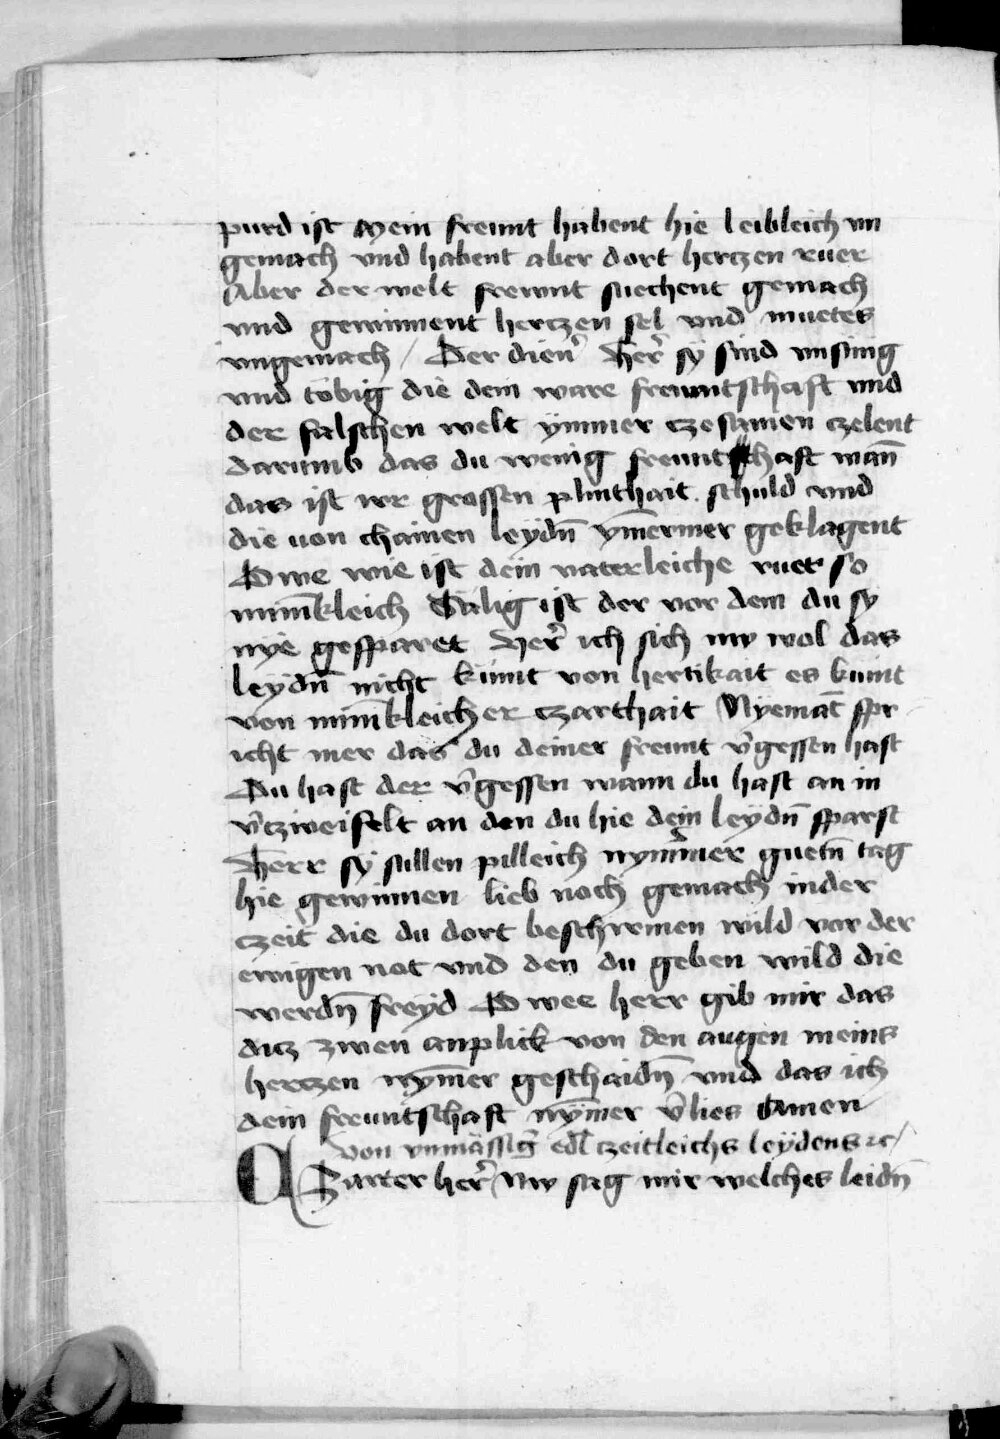 purd ist Mein freunt habent hie leibleich un
gemach vnd habent aber dort herczen ruer
Aber der welt frewnt suechent gemach
vnd gewinnent herczen sel vnd muetes
vngemach / Der dien̄ Her̄ sÿ sind unsinig
vnd tobig die dein ware freuntschaft vnd
der falschen welt ÿmmer czesamen czelent
darumb das du wenig freuntschaft wan̄
das ist ire grossen plinthait schuld vnd
die uon chainen leÿdn̄ ym̄ermer geklagent
Owe wie ist dein vaterleiche ruet so
mīnikleich Sälig ist der vor dem du sy
nye gesparet Her̄ ich sich nw wol das
leÿdn̄ nicht kumt von hertikait es kumt
von mīnikleicher czarthait Nyemāt spr
icht mer das du deiner freunt v̄gessen hast
Du hast der v̄gessen wann du hast an in
v̄czweifelt an den du hie dein leÿdn̄ sparst
Herr sÿ sullen pilleich nym̄mer guetn̄ tag
hie gewinnen lieb noch gemach in der
czeit die du dort beschirmen wild vor der
ewigen not vnd den du geben wild die
werdn̄ freÿd Owee herr gib mir das
dicz zwen anplick von den augen meins
herczen nym̄er geschaidn̄ vnd das ich
dein freuntschaft nym̄er v̄lies Amen
Von vnmässiḡ edl̄ czeitleichs leÿdens etc /
Zarter her̄ Nw sag mir welches leidn̄